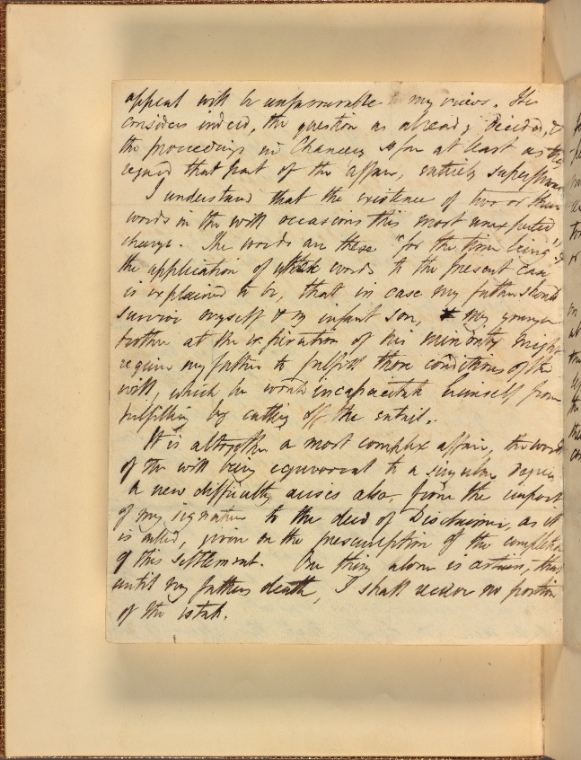 appeal will be unfavourable to my views. He
considers indeed, the question as already decided, &
the proceedings in Chancery so far at least as they
regard that part of the affair, entirely superfluous
I understand that the existence of two or three
words in the will occasions this most unexpected
change. The words are these "for the time being" &
the application of which words to the present case
is explained to be, that in case my father should
survive myself & my infant son, my younger
brother at the expiration of his minority might
require my father to fulfill those conditions of the
will, which he would incapacitate himself from
fulfilling by cutting off the entail.
It is altogether a most complex affair, the words
of the will being equivocal to a singular degree
A new difficulty arises also from the import
of my signature to the deed of Disclaimer, as it
is called, given on the presumption of the completion
of this settlement. One thing alone is certain, that
until my fathers death, I shall receive no portion
of the estate.